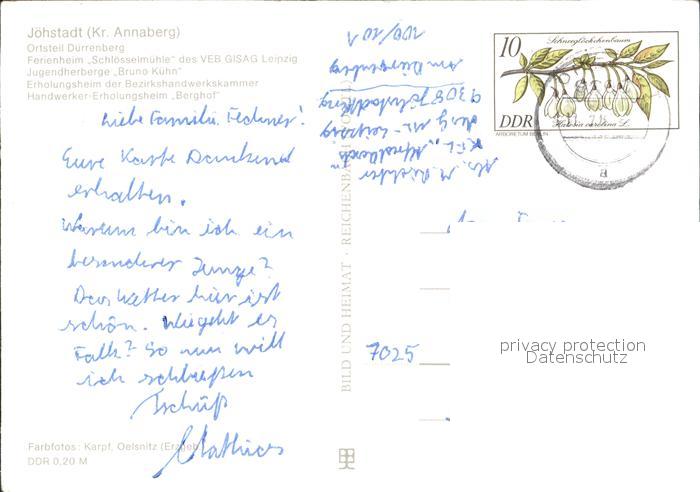 Jöhstadt (Kr. Annaberg)
Ortsteil Dürrenberg
Ferienheim „Schlösselmühle" des VEB GISAG Leipzig
Jugendherberge „Bruno Kühn"
Erholungsheim der Bezirkshandwerkskammer
Handwerker-Erholungsheim „Berghof"
Liebe Familie Fechner!
Eure Karte Dankend
erhalten.
Warum bin ich ein
besonderer Junge?
Das Wetter hier ist
schön. Wie geht es
Falk? So nun will
ich schließen
Tschüß
Mathias
Farbfotos: Karpf, Oelsnitz (Erzgeb.)
DDR 0,20 M
BILD UND HEIMAT · REICHENBACH
Abs. M.
K.F.L.
9308 Jöhstadt
Am Dürrenberg
100/101
10
Schneeglöckchenbaum
DDR
Halesia carolina L.
ARBORETUM BERLIN
7025
privacy protection
Datenschutz